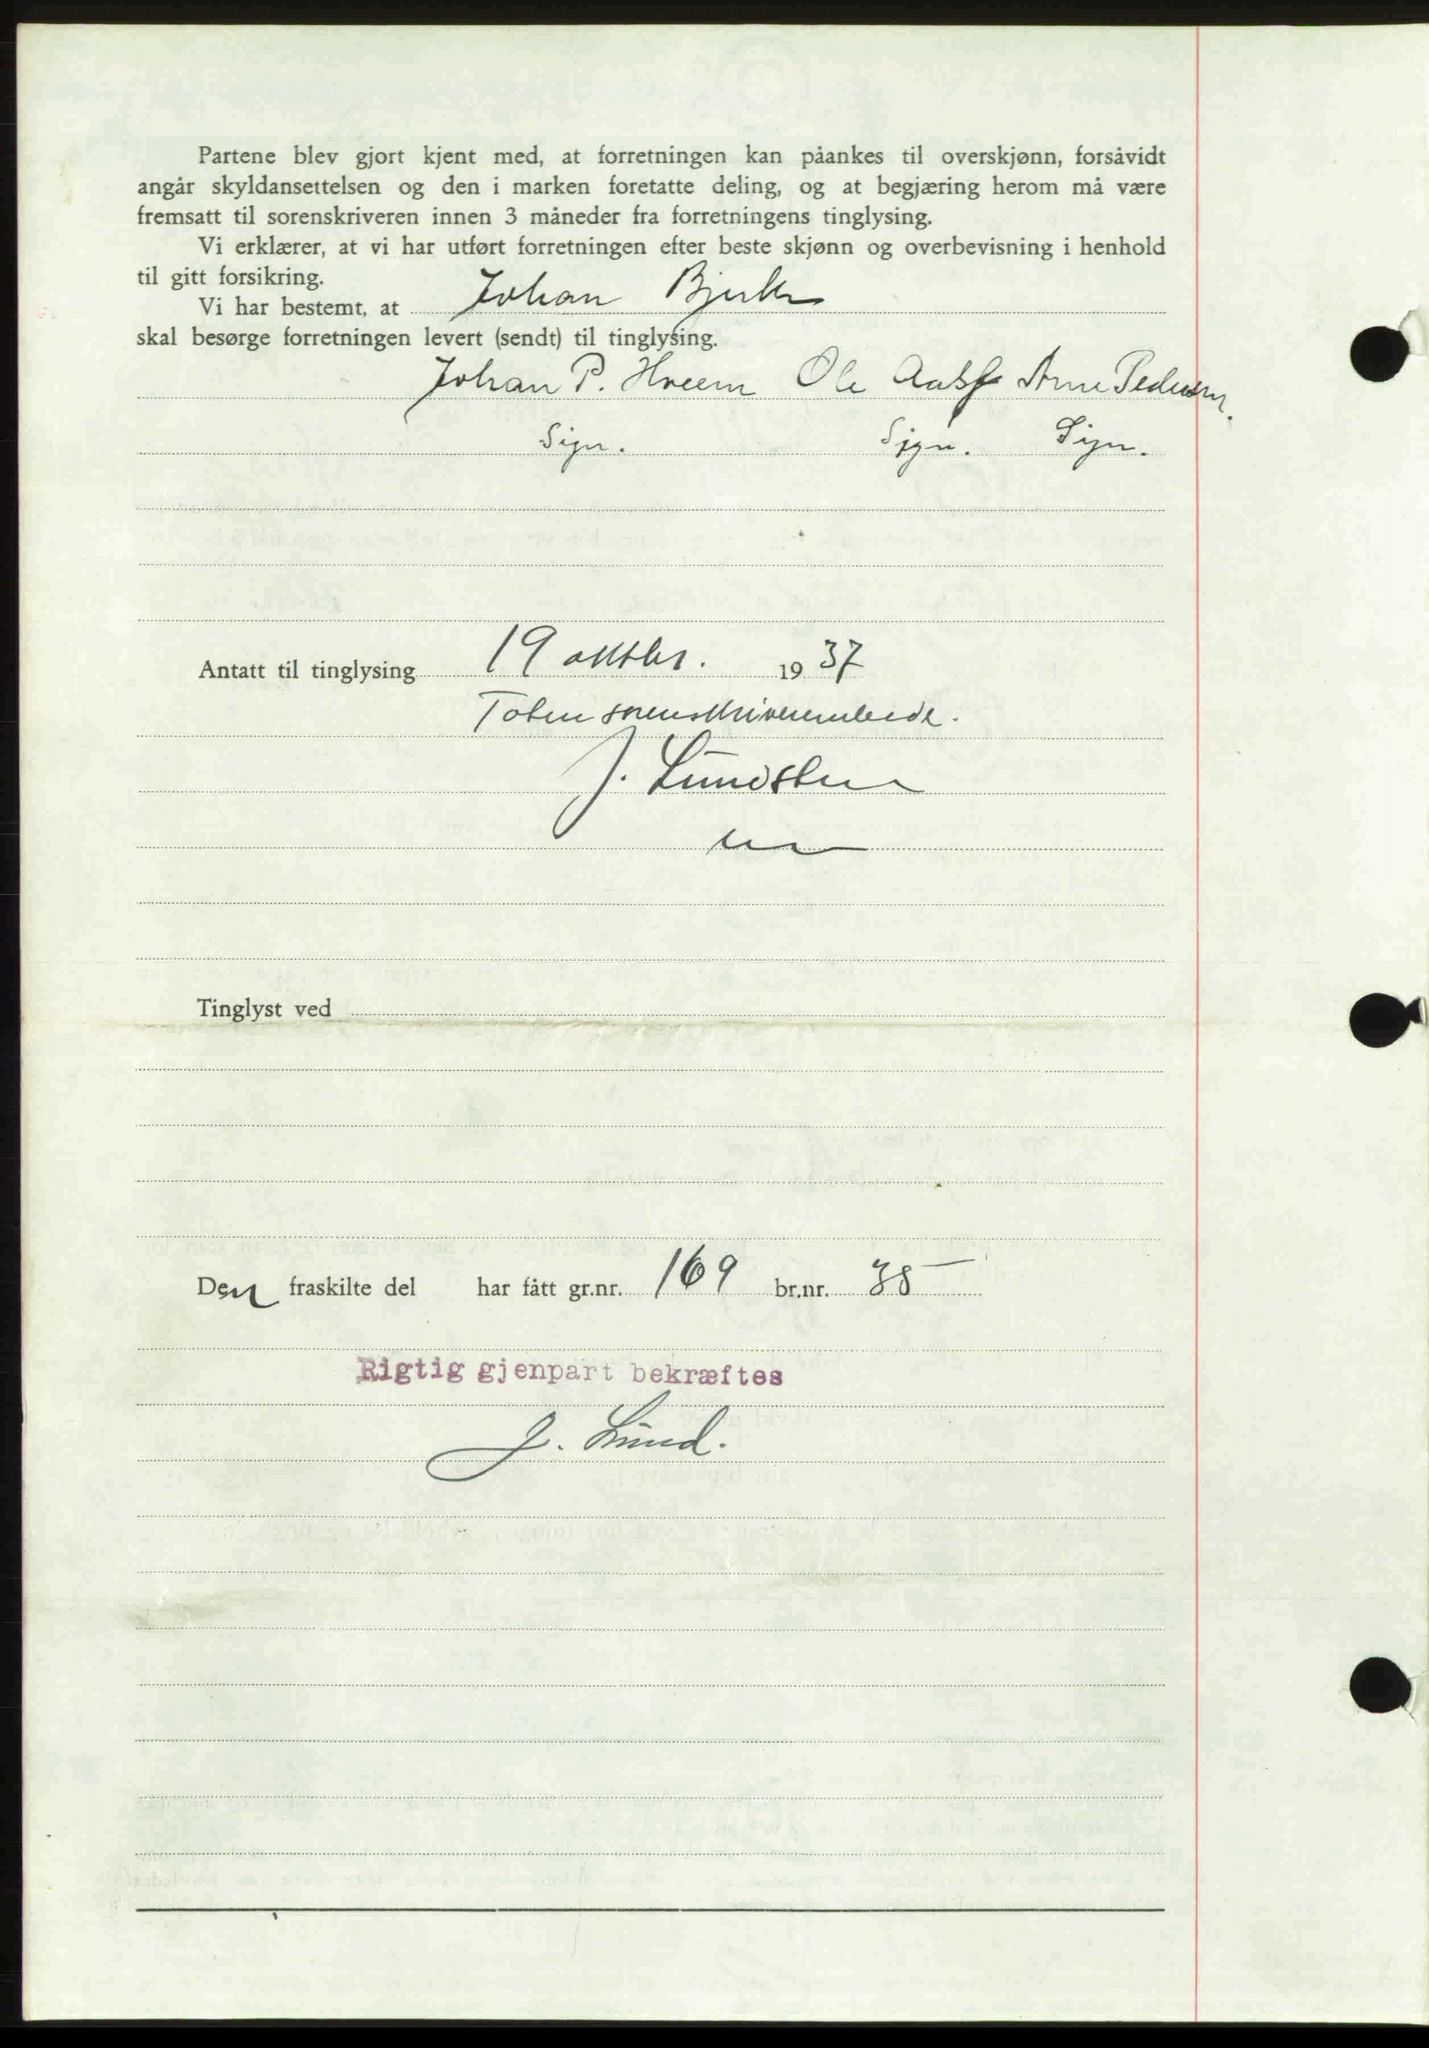 Partene blev gjort kjent med, at forretningen kan påankes til overskjønn, forsåvidt
angår skyldansettelsen og den i marken foretatte deling, og at begjæring herom må være
fremsatt til sorenskriveren innen 3 måneder fra forretningens tinglysing.
Vi erklærer, at vi har utført forretningen efter beste skjønn og overbevisning i henhold
til gitt forsikring.
Vi har bestemt, at Johan Bjerke
skal besørge forretningen levert (sendt) til tinglysing.
Johan P. Hveem Ole Arne Pedersen.
Sign. Sign. Sign.
Antatt til tinglysing 19 oktbr. 1937
Toten sorenskriverembede.
J. Lundsten
Tinglyst ved
Den fraskilte del har fått gr.nr. 169 br.nr. 38
Rigtig gjenpart bekræftes
J. Lund.